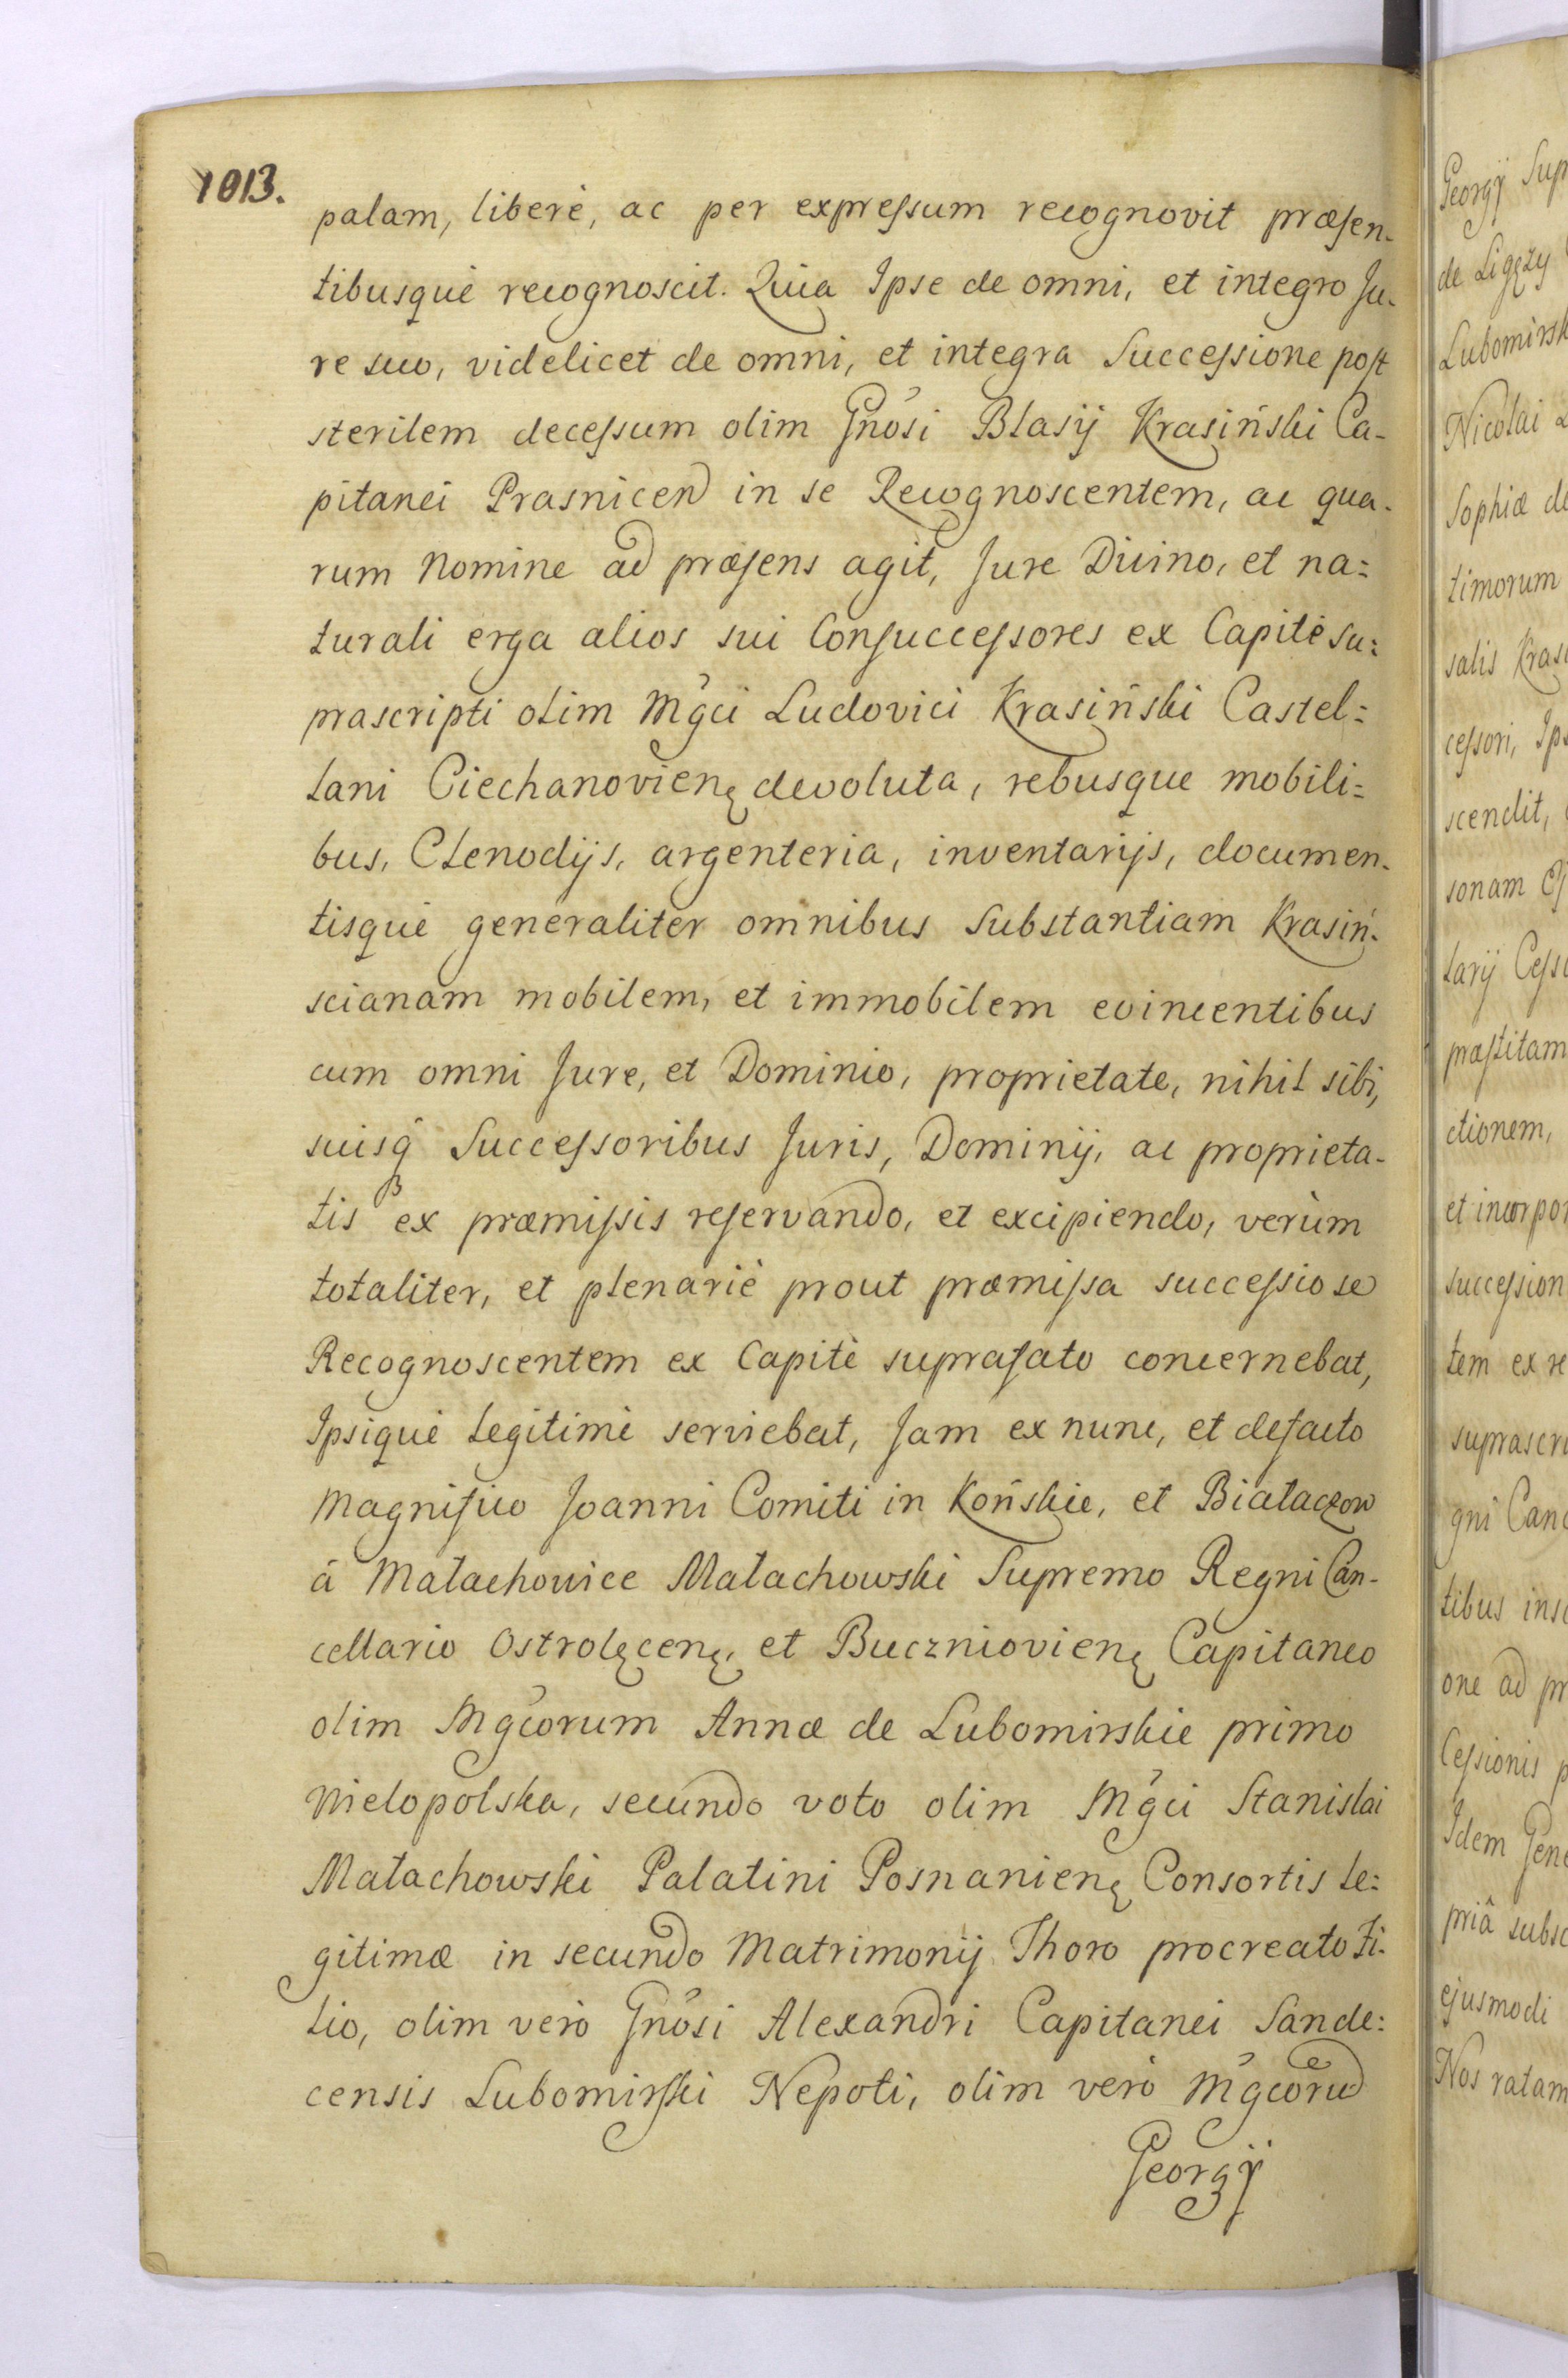 1013.
palam, liberè, ac per expressum recognovit præsen-
tibusquè recognoscit. Quia Ipse de omni, et integro Ju-
re suo, videlicet de omni, et integra Successione post
sterilem decessum olim Gnosi Blasij Krasiński Ca-
pitanei Prasnicen in se Recognoscentem, ac qua-
rum Nomine ad præsens agit, Jure Divino, et na=
turali erga alios sui Consuccessores ex Capitè su=
prascripti olim Mgci Ludovici Krasiński Castel=
lani Ciechanovien devoluta, rebusque mobili=
bus, Clenodijs, argenteria, inventarijs, documen-
tisquè generaliter omnibus Substantiam Krasiń-
scianam mobilem, et immobilem evincentibus
cum omni Jure, et Dominio, proprietate, nihil sibi,
suisq̃ Successoribus Juris, Dominij, ac proprieta-
tis ex præmissis reservando, et excipiendo, verùm
totaliter, et plenariè prout præmissa successio se
Recognoscentem ex Capitè suprafato concernebat,
Ipsiquè legitimè serviebat, Jam ex nunc, et defacto
Magnifico Joanni Comiti in Końskie, et Białaczow
â Małachowice Małachowski Supremo Regni Can-
cellario Ostrolęcen, et Buczniovien Capitaneo
olim Mgcorum Annæ de Lubomirskie primo
Wielopolska, secundo voto olim Mgci Stanislai
Małachowski Palatini Posnanien Consortis le=
gitimæ in secundo Matrimonij Thoro procreato Fi-
lio, olim verò Gnosi Alexandri Capitanei Sande=
censis Lubomirski Nepoti, olim verò Mgcoru
Georgij
Georgij Sup
de Ligęzy
Lubomirsk
Nicolai
Sophiæ de
timorum
salis Kras
cessori, Ips
scendit,
sonam
larij Cess
præstitam
ctionem,
et incorpor
succession
tem ex re
suprascri
gni Canc
tibus ins
one ad pr
Cessionis p
Idem Gene
priâ subsc
ejusmodi
Nos ratam